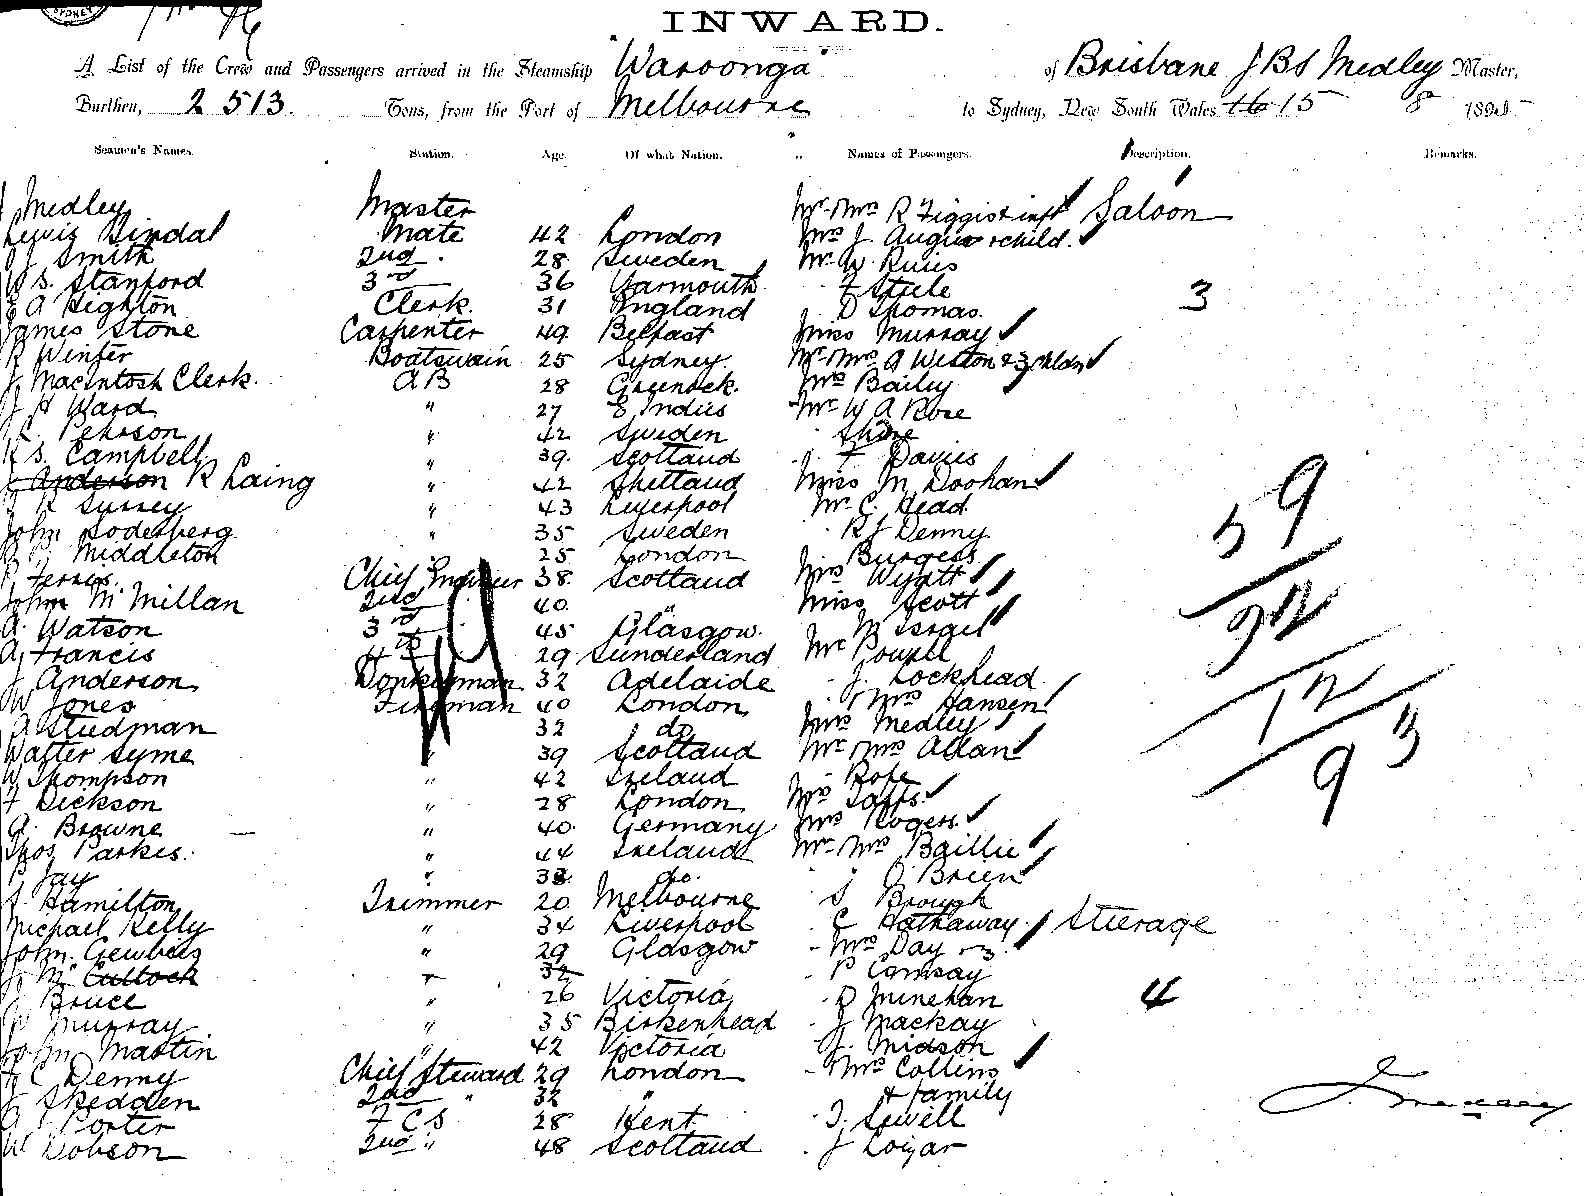 SYDNEY
INWARD.
A List of the Crew and Passengers arrived in the Steamship "Waroonga" of Brisbane J B S Medley Master,
Burthen, 2513. Tons, from the Port of Melbourne to Sydney, New South Wales 16 15 8 189
Seamen's Names. Station. Age. Of what Nation. Names of Passengers. Description. Remarks.
Medley Master Mr Mrs R Figgis & inft Saloon
Lewis Mate 42 London Mrs J. Angus & child.
Smith 2nd 28 Sweden Mr W.
S. Stanford 3rd 36 Yarmouth F Steele 3
A Highton Clerk. 31 England D Thomas.
James Stone Carpenter 49 Belfast Miss Murray
R Winter Boatswain 25 Sydney. Mr Mrs A Weston & 3 chldn
J. Macintosh Clerk. A B 28 Greenock. Mrs Bailey
J H Ward " 27 E Indies Mr W A Rose
Pehrson " 42 Sweden
S. Campbell " 39. Scotland F Davies
Anderson R Laing " 42 Shetland Miss M. Doohan
" 43 Liverpool Mr C. Head
John Soderberg " 35 Sweden R J Denny
Middleton " 25 London Burgess
Chief Engineer 38. Scotland Mrs Wyatt
John McMillan 2nd 40. " Miss Scott
A. Watson 3rd 45 Glasgow. Israel
A. Francis 4th 29 Sunderland Mr Powell
J Anderson Donkeyman 32 Adelaide J. Lockhead
W Jones Fireman 40 London Mrs Hansen
A Studman 32 do Mrs Medley
Walter Syme " 39 Scotland Mr Mrs Allan
W Thompson " 42 Ireland Rose
F Dickson " 28 London Mrs
G. Browne " 40. Germany Mrs Rogers.
Thos Parkes. " 44 Ireland Mr Mrs Baillie
P Jay " do. J O'Brien
Hamilton Trimmer 20 Melbourne S Brough
Michael Kelly " 34 Liverpool C Hathaway. Steerage
John " 29 Glasgow Mrs Day
J. Mc Cullock 32 P
Bruce " 26 Victoria D Minehan 4
Murray " 35 Birkenhead J Mackay
John Martin " 42 Victoria J. Midson
C Denny Chief Steward 29 London Mrs Collins
J Skedden 2nd " 32 " & family
Porter F C S 28 Kent T. Sewell
W Dobson 2nd " 48 Scotland J
59
32
12
93